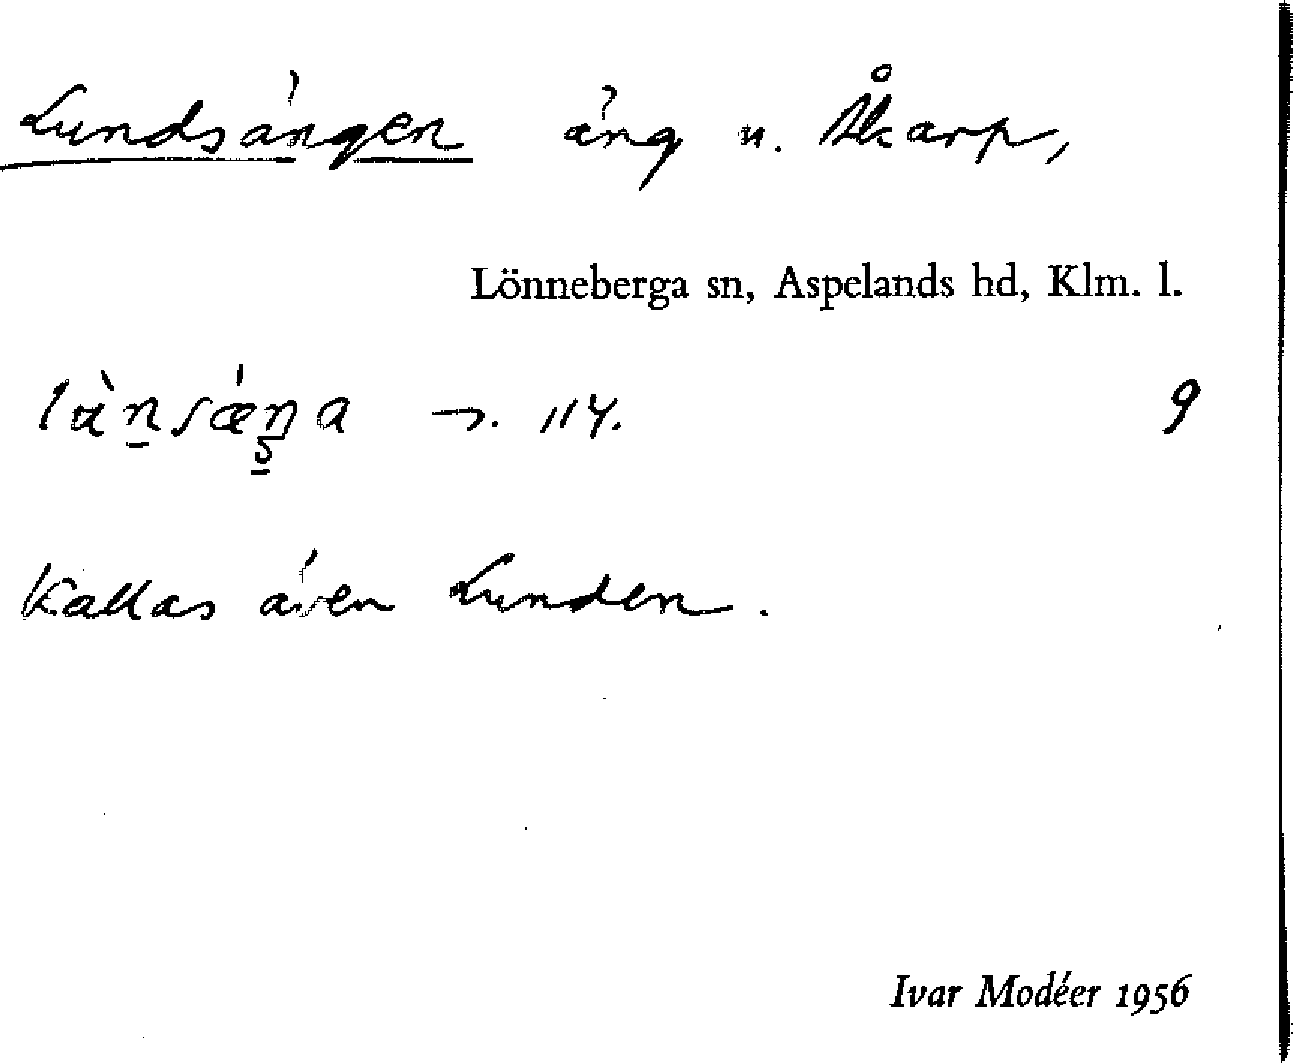 Lundsängen äng u. Åkarp,
Lönneberga sn, Aspelands hd, Klm. l.
9
Kallas även Lunden.
Ivar Modéer 1956